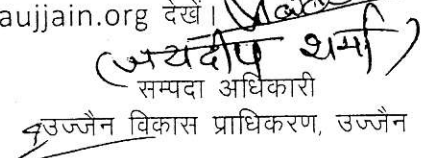 aujjain.org देखें।
(जयदीप शर्मा)
सम्पदा अधिकारी
उज्जैन विकास प्राधिकरण, उज्जैन